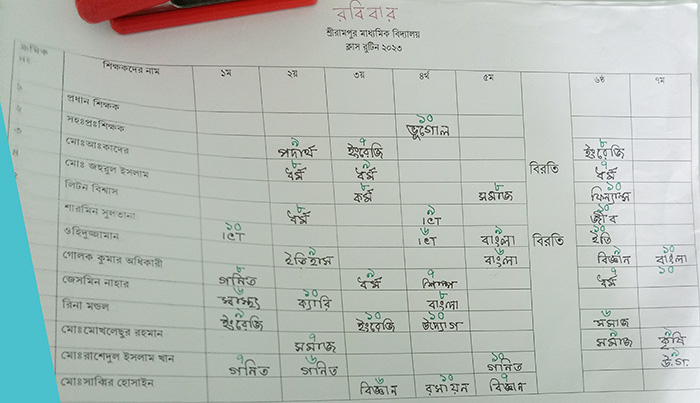 রবিবার
শ্রীরামপুর মাধ্যমিক বিদ্যালয়
ক্লাস রুটিন ২০২৩
ক্রমিক নং শিক্ষকদের নাম ১ম ২য় ৩য় ৪র্থ ৫ম ৬ষ্ঠ ৭ম
প্রধান শিক্ষক
সহঃপ্রঃশিক্ষক ১০ ভূগোল
মোঃআঃকাদের ৯ পদার্থ ৭ ইংরেজি ৮ ইংরেজি
মোঃ জহুরুল ইসলাম ৮ ধর্ম ৯ ধর্ম বিরতি ৭ ধর্ম
লিটন বিশ্বাস ৮ কর্ম ৮ সমাজ ১০ ফিন্যান্স
শারমিন সুলতানা ৮ ধর্ম ৯ ICT ১০ জীব
ওহিদুজ্জামান ১০ ICT ৬ ICT ৯ বাংলা বিরতি ১০ ইতি
গোলক কুমার অধিকারী ৯ ইতিহাস ৬ বাংলা ৯ বিজ্ঞান ১০ বাংলা
জেসমিন নাহার ৮ গনিত ৯ ধর্ম ৭ শিল্প ৭ ধর্ম ১০
রিনা মন্ডল ৬ স্বাস্থ্য ১০ ক্যারি ৮ বাংলা
মোঃমোখলেছুর রহমান ৯ ইংরেজি ১০ ইংরেজি ১০ উদ্যোগ ৬ সমাজ
৭ সমাজ ৭ সমাজ ৯ কৃষি
মোঃরাশেদুল ইসলাম খান ৭ গনিত ৬ গনিত ১০ গনিত ৯ উ.গ.
মোঃসাব্বির হোসাইন ৬ বিজ্ঞান ১০ রসায়ন ৭ বিজ্ঞান